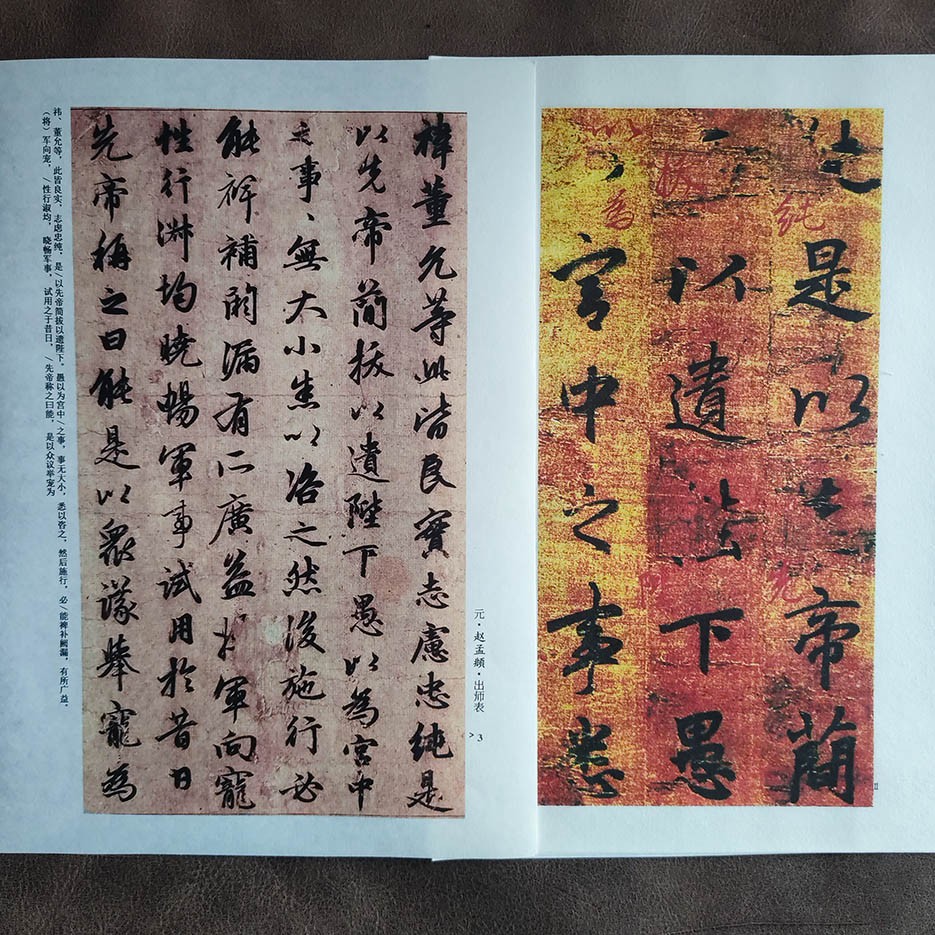 禕董允等此皆良實志慮忠純是
以先帝簡拔以遺陛下愚以為宮中
之事、無大小悉以咨之然後施行必
能裨補闕漏有所廣益將軍向寵
性行淑均曉暢軍事試用於昔日
先帝稱之曰能是以眾議舉寵為
祎、董允等，此皆良实，志虑忠纯，是/以先帝简拔以遗陛下。愚以为宫中/之事，事无大小，悉以咨之，然后施行，必/能裨补阙漏，有所广益。
（将）军向宠，/性行淑均，晓畅军事，试用之于昔日，/先帝称之曰能，是以众议举宠为
元·赵孟頫·出师表
>3
純是以先帝簡
拔以遺陛下愚
以為宮中之事悉